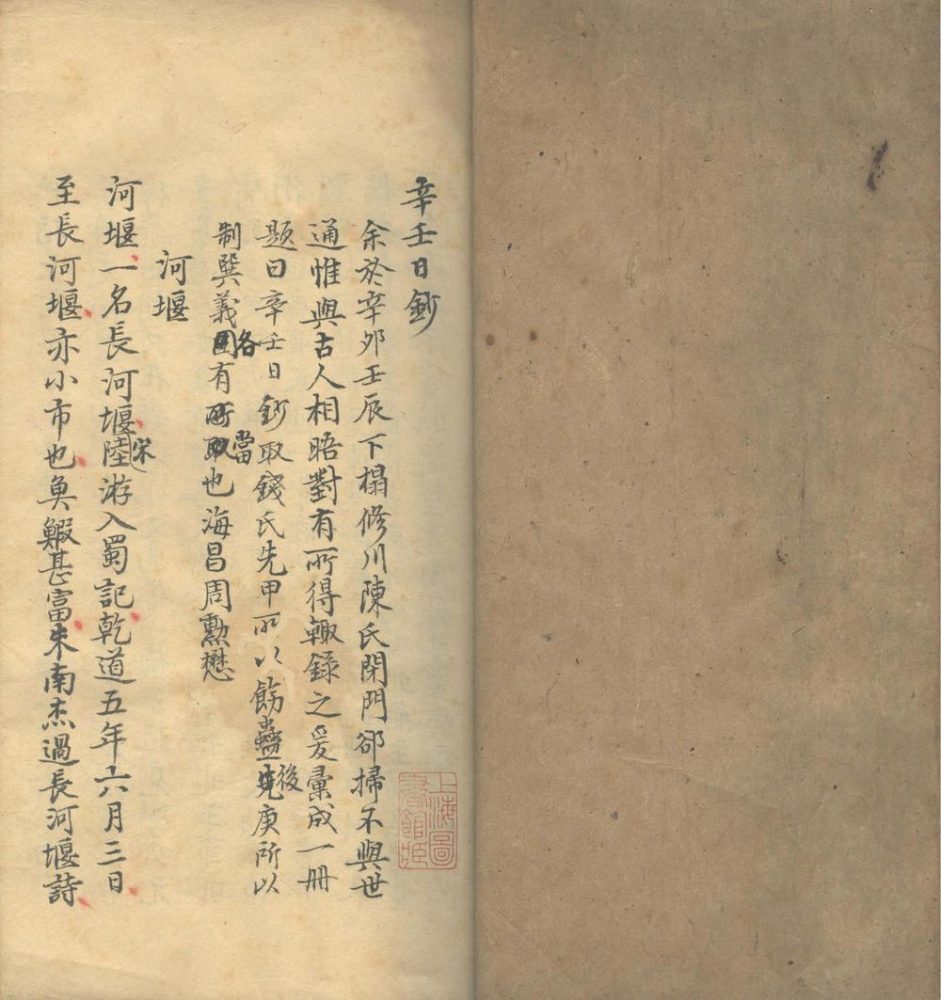 辛壬日鈔
余於辛卯壬辰下榻修川陳氏閉門郤掃不與世
通惟與古人相晤對有所得輒錄之爰彙成一册
題曰辛壬日鈔取錢氏先甲所以飭蠱後庚所以
制巽義各有當也海昌周勲懋
河堰
河堰一名長河堰宋陸游入蜀記乾道五年六月三日
至長河堰亦小市也魚鰕甚富朱南杰過長河堰詩
上海圖
書館臧